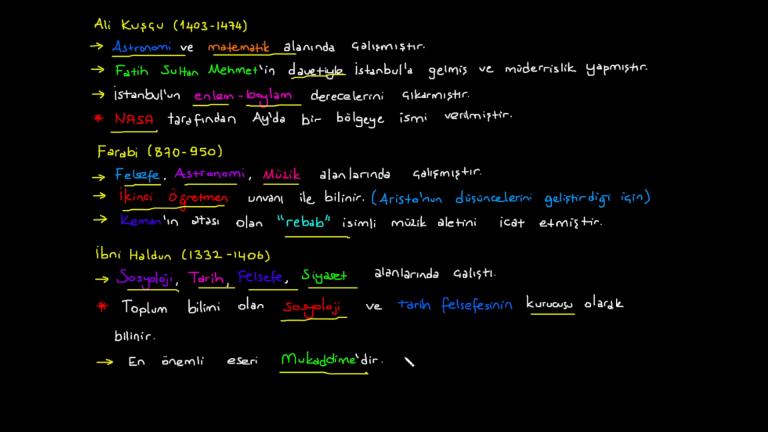 Ali Kuşçu (1403-1474)
→ Astronomi ve matematik alanında çalışmıştır.
→ Fatih Sultan Mehmet'in davetiyle İstanbul'a gelmiş ve müderrislik yapmıştır.
→ İstanbul'un enlem-boylam derecelerini çıkarmıştır.
* NASA tarafından Ay'da bir bölgeye ismi verilmiştir.
Farabi (870-950)
→ Felsefe, Astronomi, Müzik alanlarında çalışmıştır.
→ İkinci Öğretmen unvanı ile bilinir. (Aristo'nun düşüncelerini geliştirdiği için)
→ Keman'ın atası olan "rebab" isimli müzik aletini icat etmiştir.
İbni Haldun (1332-1406)
→ Sosyoloji, Tarih, Felsefe, Siyaset alanlarında çalıştı.
* Toplum bilimi olan sosyoloji ve tarih felsefesinin kurucusu olarak
bilinir.
→ En önemli eseri Mukaddime'dir.